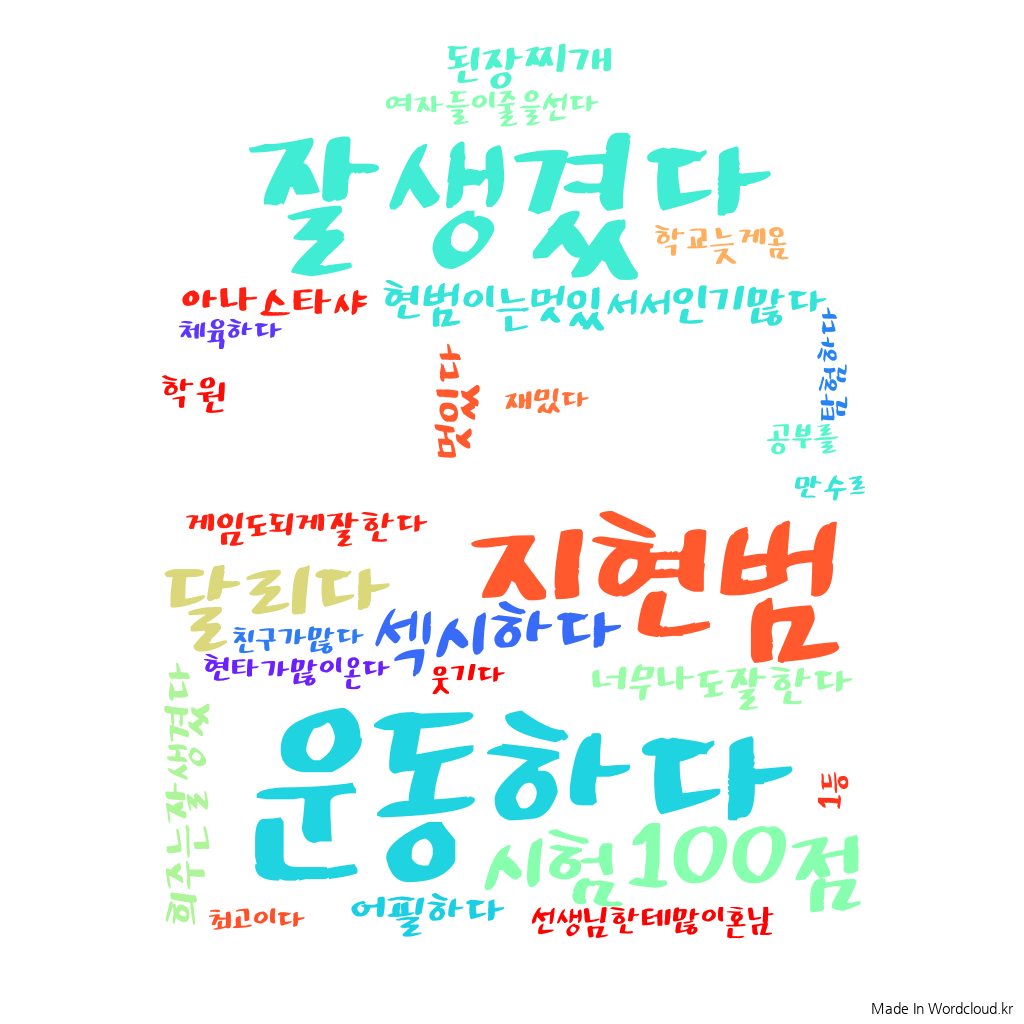 된장찌개
여자들이줄을선다
잘생겼다
학교늦게옴
아나스타샤
현범이는멋있서서인기많다
체육하다
학원
재밌다
공부를
만수르
게임도되게잘한다
지현범
달리다
섹시하다
친구가많다
현타가많이온다
웃기다
너무나도잘한다
희주는잘생겼다
운동하다
1등
시험100점
최고이다
어필하다
선생님한테많이혼남
Made In Wordcloud.kr